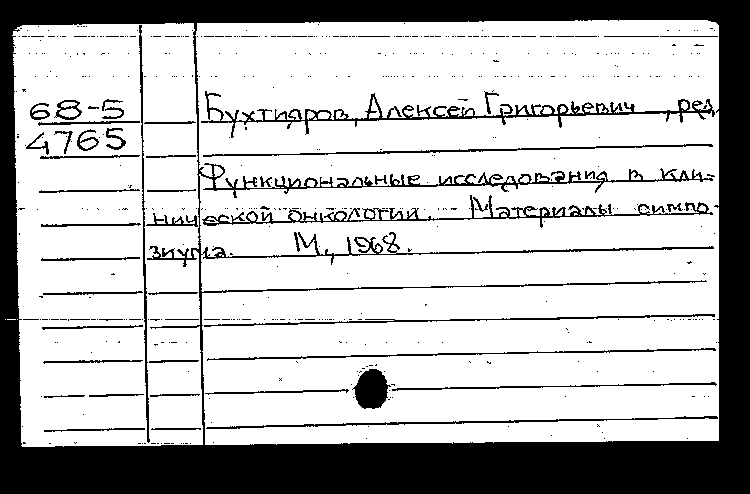 68-5 Бухтияров, Алексей Григорьевич, ред.
4765
Функциональные исследования в кли-
нической онкологии. - Материалы симпо-
зиума. М., 1968.